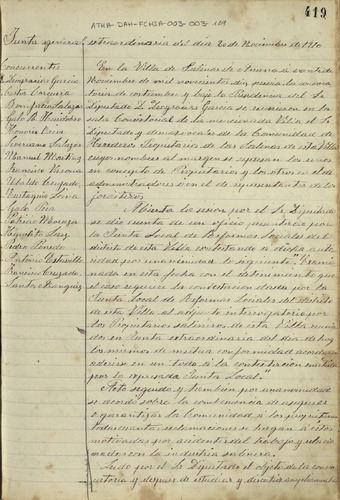 419
ATHA-DAH-FCHSA-003-003-1
Junta general extraordinaria del día 20 de Noviembre de 1910
Concurrentes
Deogracias García
Gabo M.
Honorio
Severiano Salazar
Manuel Martínez
Francisco Varona
Ubaldo Cruzado
Eustaquia
Patricio
Hipólito
Pedro
Francisco Cruzado
En la Villa de Salinas de Añana a veinte de
Noviembre de mil novecientos diez previa la convoca
toria de costumbre y bajo la Presidencia del Sr.
Diputado D. Deogracias García se reunieron en la
sala Consistorial de la mencionada Villa el Sr.
Diputado y demas vocales de la Comunidad de
Herederos Propietarios de las Salinas de esta Villa
cuyos nombres al margen se expresan los unos
en concepto de Propietarios y los otros en el de
administradores o en el de representantes de los
forasteros
Abierta la sesion por el Sr. Diputado
se dio cuenta de un oficio suscrito por
la Junta Local de Reformas Sociales del
distrito de esta Villa contestando a dicha auto
ridad por unanimidad lo siguiente: "Exami
nada en esta fecha con el detenimiento que
el caso requiere la contestacion dada por la
Junta Local de Reformas Sociales del distrito
de esta Villa al adjunto interrogatorio por
los Propietarios salineros de esta Villa reuni
dos en Junta extraordinaria del dia de hoy
los mismos de mutua conformidad acordaron
adherirse en un todo a la contestacion emitida
por la expresada Junta Local."
Acto seguido y tambien por unanimidad
se acordó sobre la conveniencia de asegurar
o garantizar la Comunidad a los propietarios
reclamaciones se hagan a estos
motivadas por accidentes del trabajo y relacio
nados con la industria salinera.
por el Sr. Diputado el objeto de la convo
catoria y despues de estudiar y discutir ampliamente